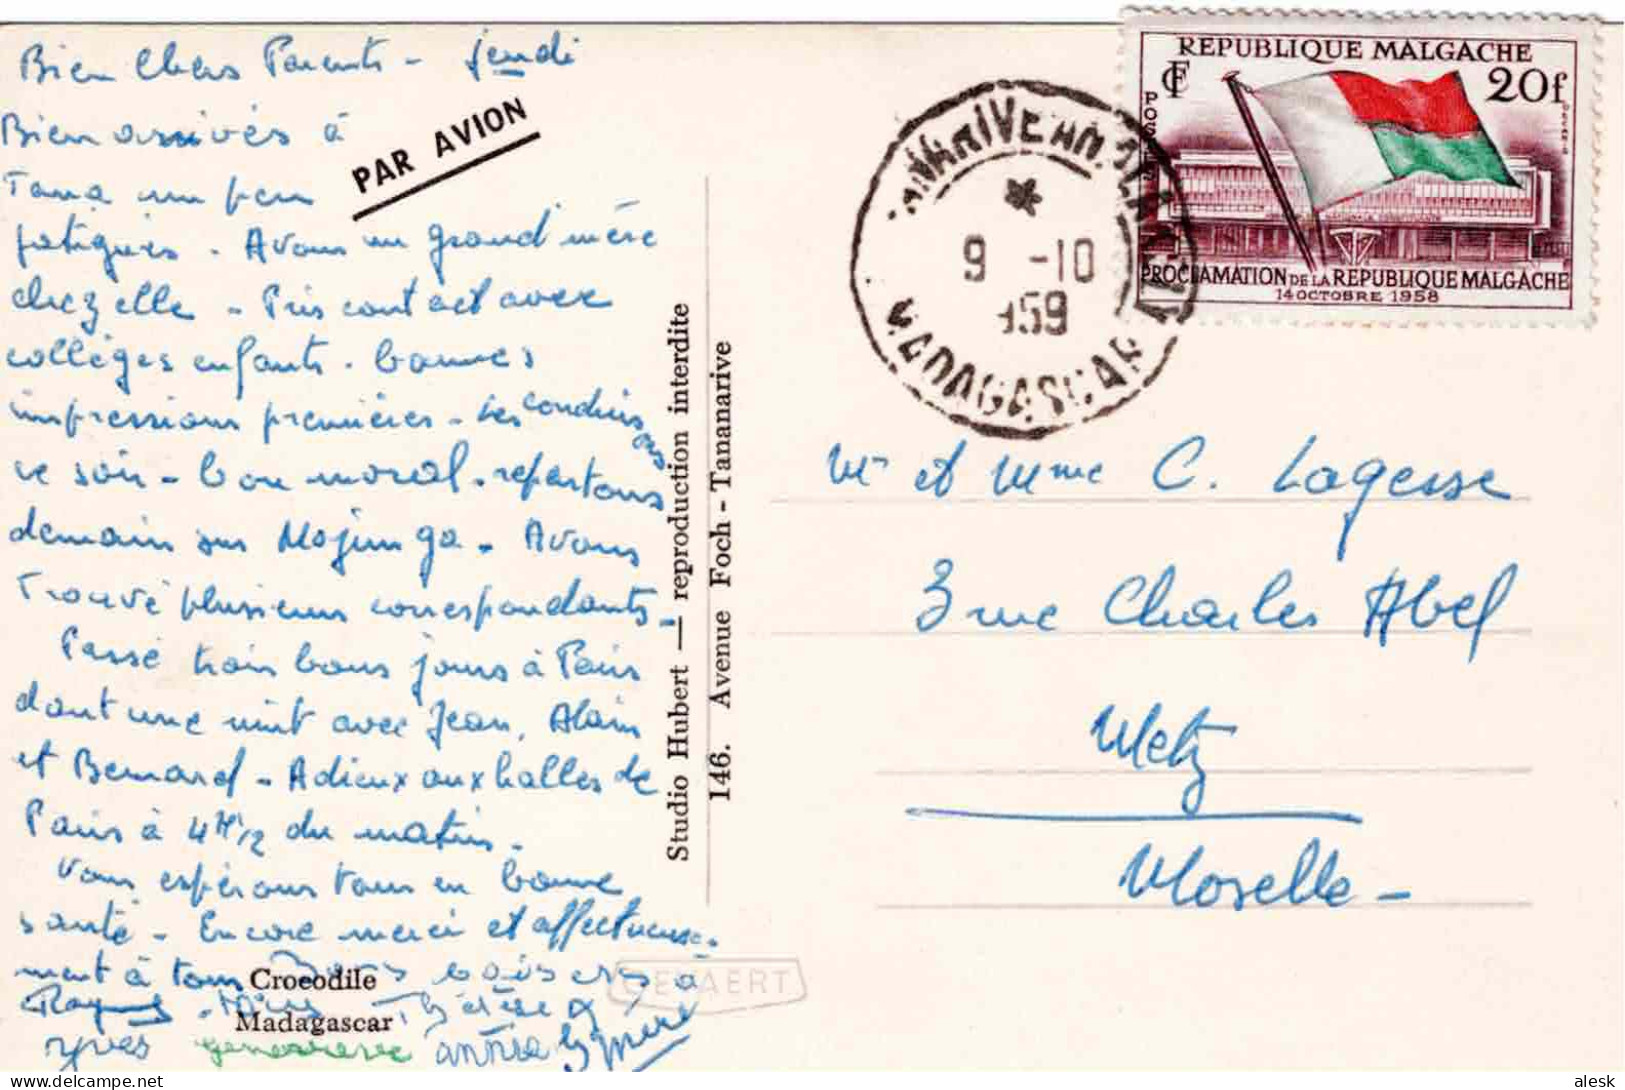 Bien chers Parents - jeudi
Bien arrivés à
Tana un peu
fatigués - Avons vu grand'mère
chez elle - Pris contact avec
collèges enfants - bonnes
impressions premières - Les conduisons
ce soir - bon moral - repartons
demain sur Majunga - Avons
trouvé plusieurs correspondants -
Passé trois bons jours à Paris
dont une nuit avec Jean, Alain
et Bernard - Adieux aux halles de
Paris à 4H 1/2 du matin -
Vous espérons tous en bonne
santé - Encore merci et affectueuse-
ment à tous Bons baisers à
Thérèse
yves geneviève annie
Crocodile
Madagascar
PAR AVION
Studio Hubert — reproduction interdite
146. Avenue Foch - Tananarive
GEVAERT
REPUBLIQUE MALGACHE
20f
POSTES
PROCLAMATION DE LA REPUBLIQUE MALGACHE
14 OCTOBRE 1958
9 -10
959
MADAGASCAR
Mr et Mme C. Lagesse
3 rue Charles Abel
Metz
Moselle -
delcampe.net
alesk